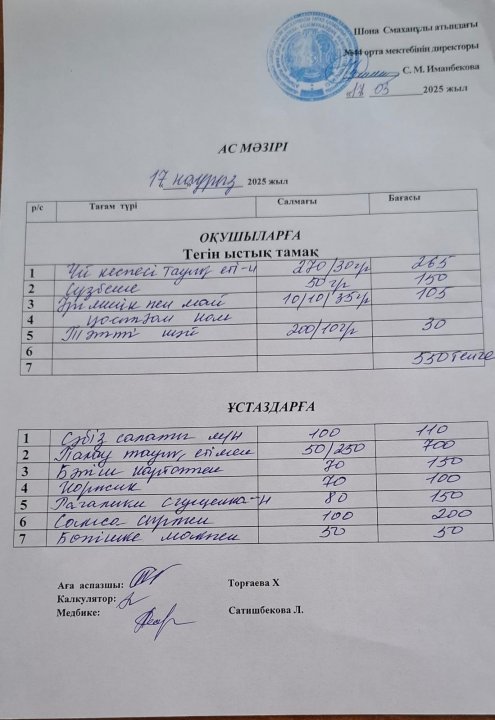 Шона Смаханұлы атындағы
№44 орта мектебінің директоры
С. М. Иманбекова
03 2025 жыл
АС МӘЗІРІ
17 наурыз 2025 жыл
р/с Тағам түрі Салмағы Бағасы
ОҚУШЫЛАРҒА
Тегін ыстық тамақ
1 Үй кеспесі тауық еті-н 270/30гр 265
2 Сүзбеше 50гр 150
3 Ірімшік пен май 10/10/35гр 105
4 қосылған нан
5 Тәтті шәй 200/10гр 30
6
7 550 теңге
ҰСТАЗДАРҒА
1 Сәбіз салаты 100 110
2 Палау тауық етімен 50/250 700
3 Бәтіш картоппен 70 150
4 Коржик 70 100
5 Рагалики сгущенка-н 80 150
6 Самса сырмен 100 200
7 Бәтішке макпен 50 50
Аға аспазшы: Торғаева Х
Калкулятор:
Медбике: Сатишбекова Л.